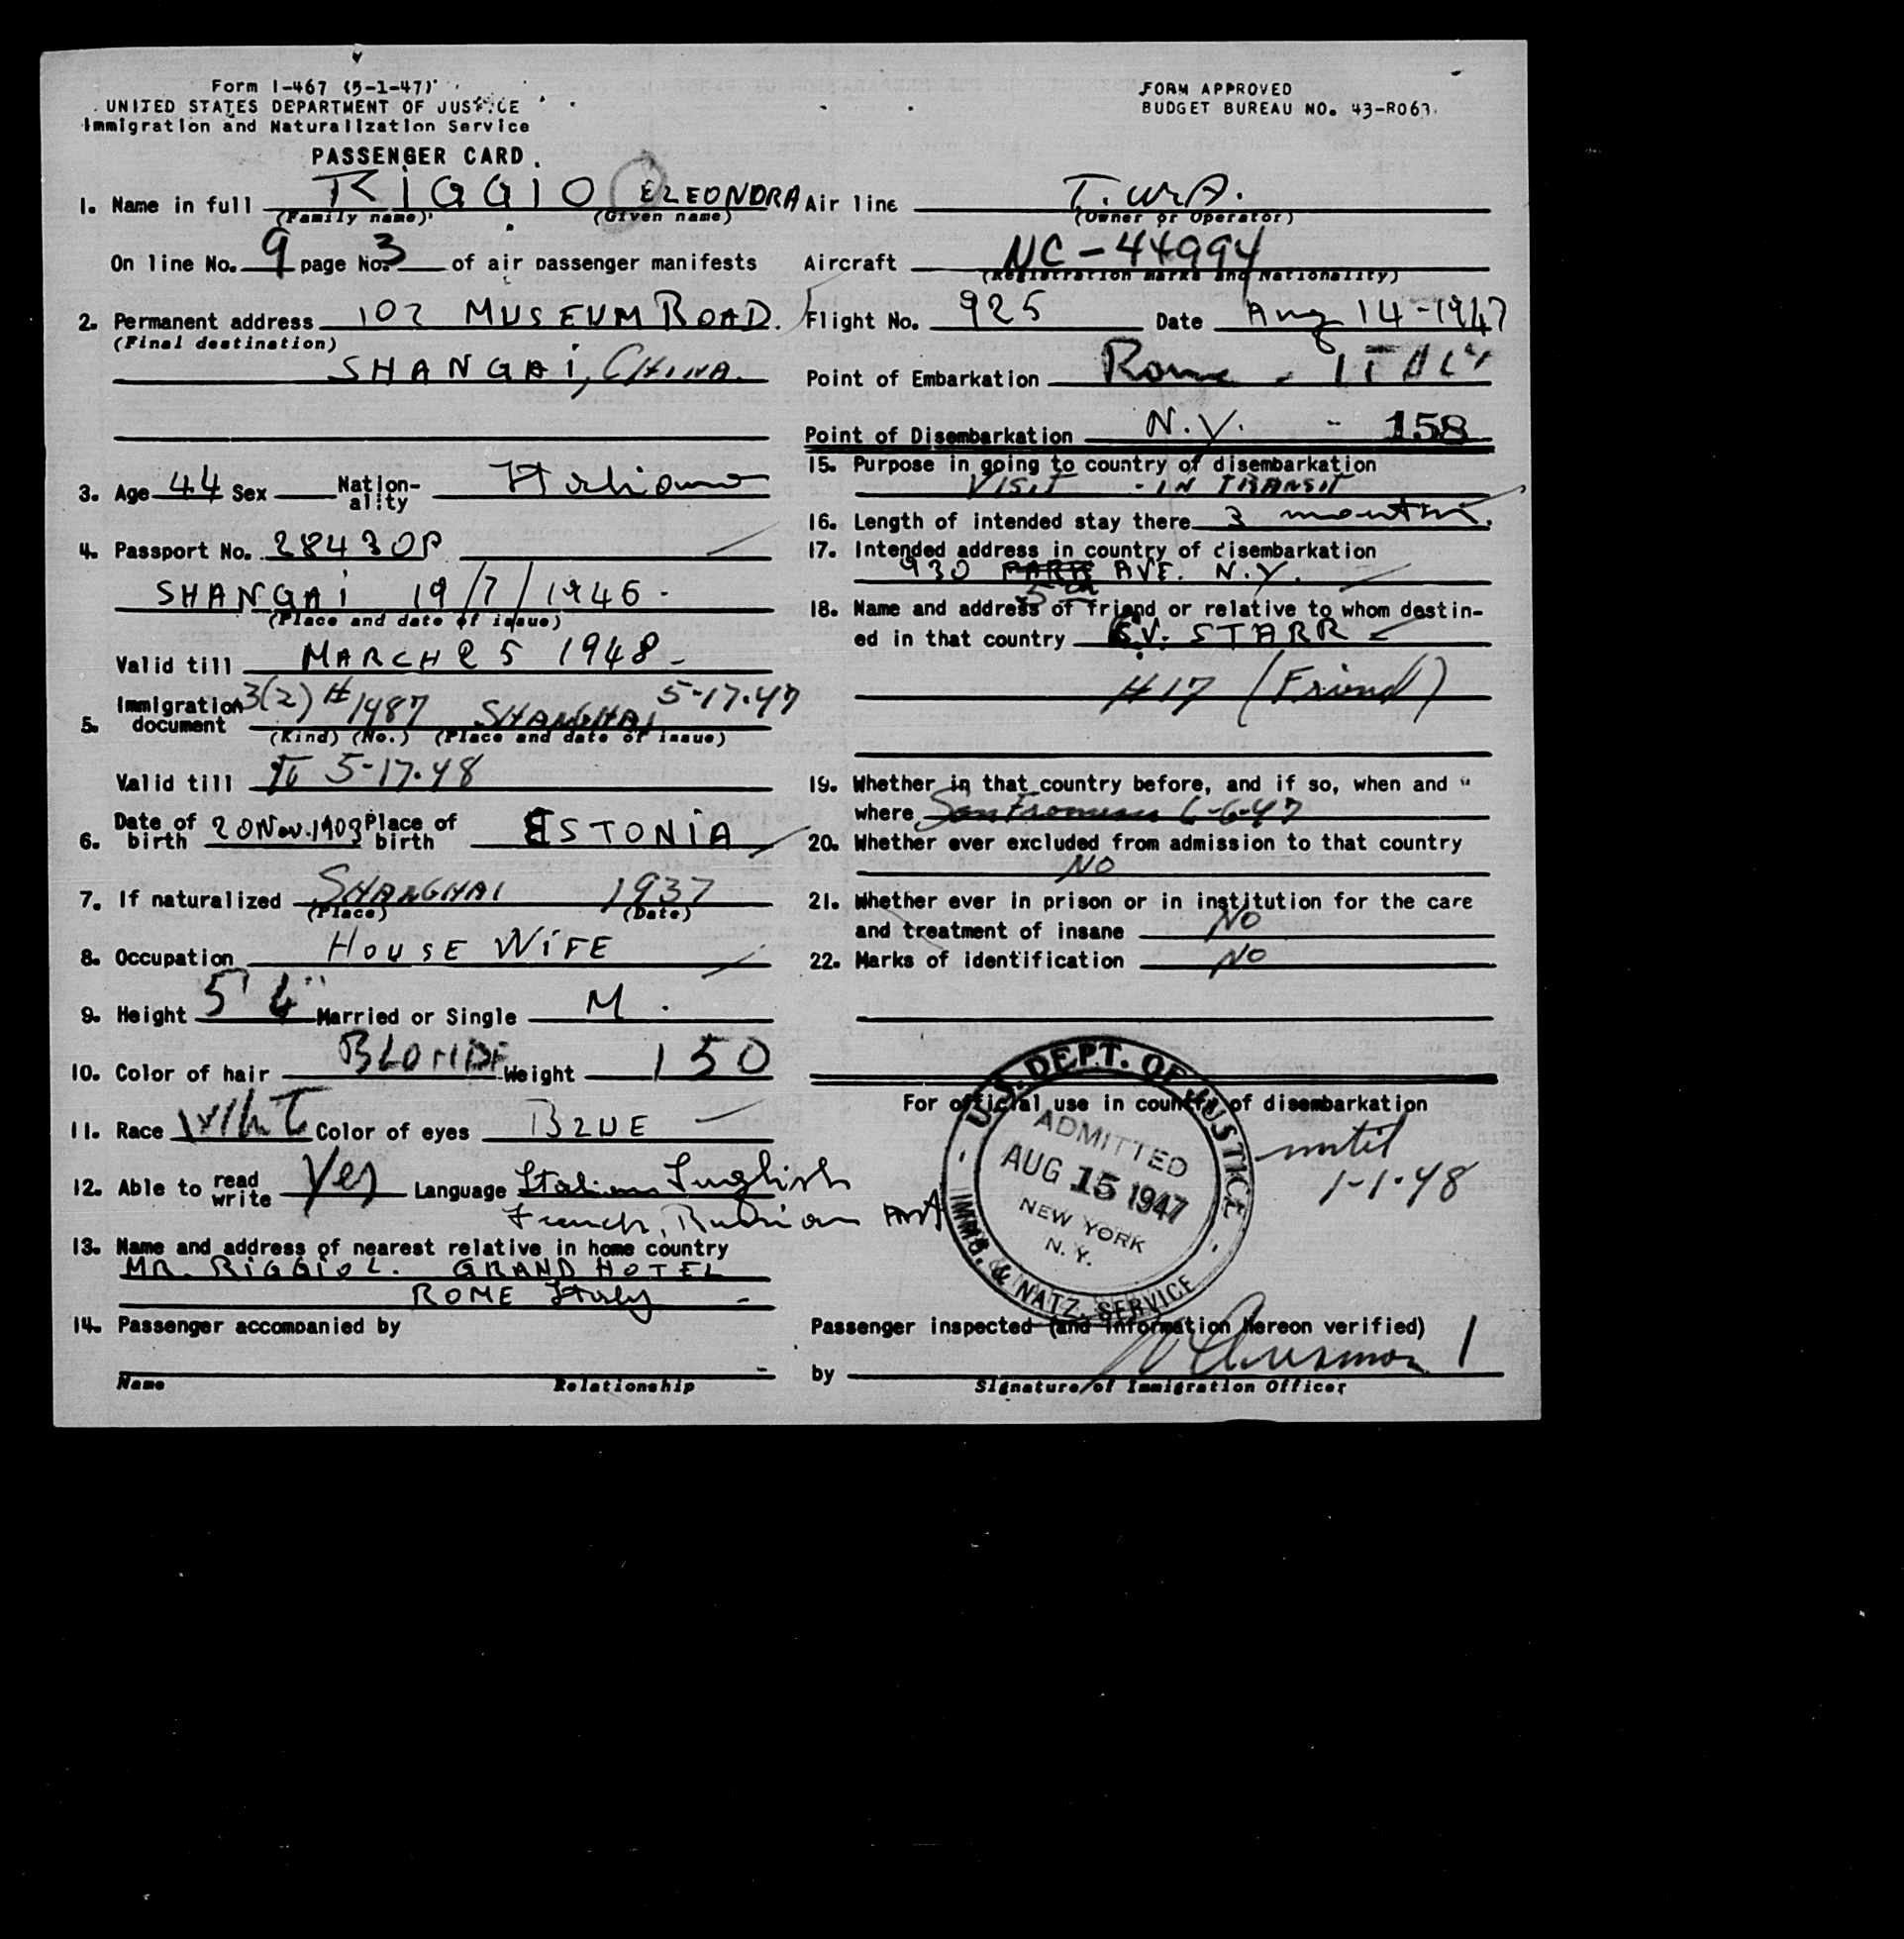 Form I-467 (5-1-47)
UNITED STATES DEPARTMENT OF JUSTICE
Immigration and Naturalization Service
PASSENGER CARD
FORM APPROVED
BUDGET BUREAU NO. 43-R063.
1. Name in full RIGGIO ELEONORA
(Family name) (Given name)
On line No. 9 page No. 3 of air passenger manifests
2. Permanent address 102 MUSEUM ROAD.
(Final destination)
SHANGAI, CHINA.
3. Age 44 Sex Nation-ality Italiana
4. Passport No. 28430P
SHANGAI 19/7/1946 -
(Place and date of issue)
Valid till MARCH 25 1948 -
5. Immigration document 3(2) #1987 SHANGHAI 5-17-47
(Kind) (No.) (Place and date of issue)
Valid till 5-17-48
6. Date of birth 20 Nov. 1903 Place of birth ESTONIA
7. If naturalized SHANGHAI 1937
(Place) (Date)
8. Occupation HOUSE WIFE
9. Height 5' 4" Married or Single M.
10. Color of hair BLONDE Weight 150
11. Race WhT Color of eyes BLUE
12. Able to read write Yes Language Italian English
French, Russian
13. Name and address of nearest relative in home country
MR. RIGGIO L. GRAND HOTEL
ROME Italy -
14. Passenger accompanied by
Name Relationship
Air line T.W.A.
(Owner or Operator)
Aircraft NC-44994
(Registration marks and Nationality)
Flight No. 925 Date Aug 14-1947
Point of Embarkation Rome - ITALY
Point of Disembarkation N.Y. - 158
15. Purpose in going to country of disembarkation
VISIT - IN TRANSIT
16. Length of intended stay there 3 months.
17. Intended address in country of disembarkation
930 PARK AVE. N.Y.
5th
18. Name and address of friend or relative to whom destin-
ed in that country C.V. STARR
#17 (Friend)
19. Whether in that country before, and if so, when and
where San Francisco 6-6-47
20. Whether ever excluded from admission to that country
NO
21. Whether ever in prison or in institution for the care
and treatment of insane NO
22. Marks of identification NO
For official use in country of disembarkation
U.S. DEPT. OF JUSTICE
ADMITTED
AUG 15 1947
NEW YORK
N.Y.
IMMG. & NATZ. SERVICE
until
1-1-48
Passenger inspected (and information hereon verified)
by 1
Signature of Immigration Officer